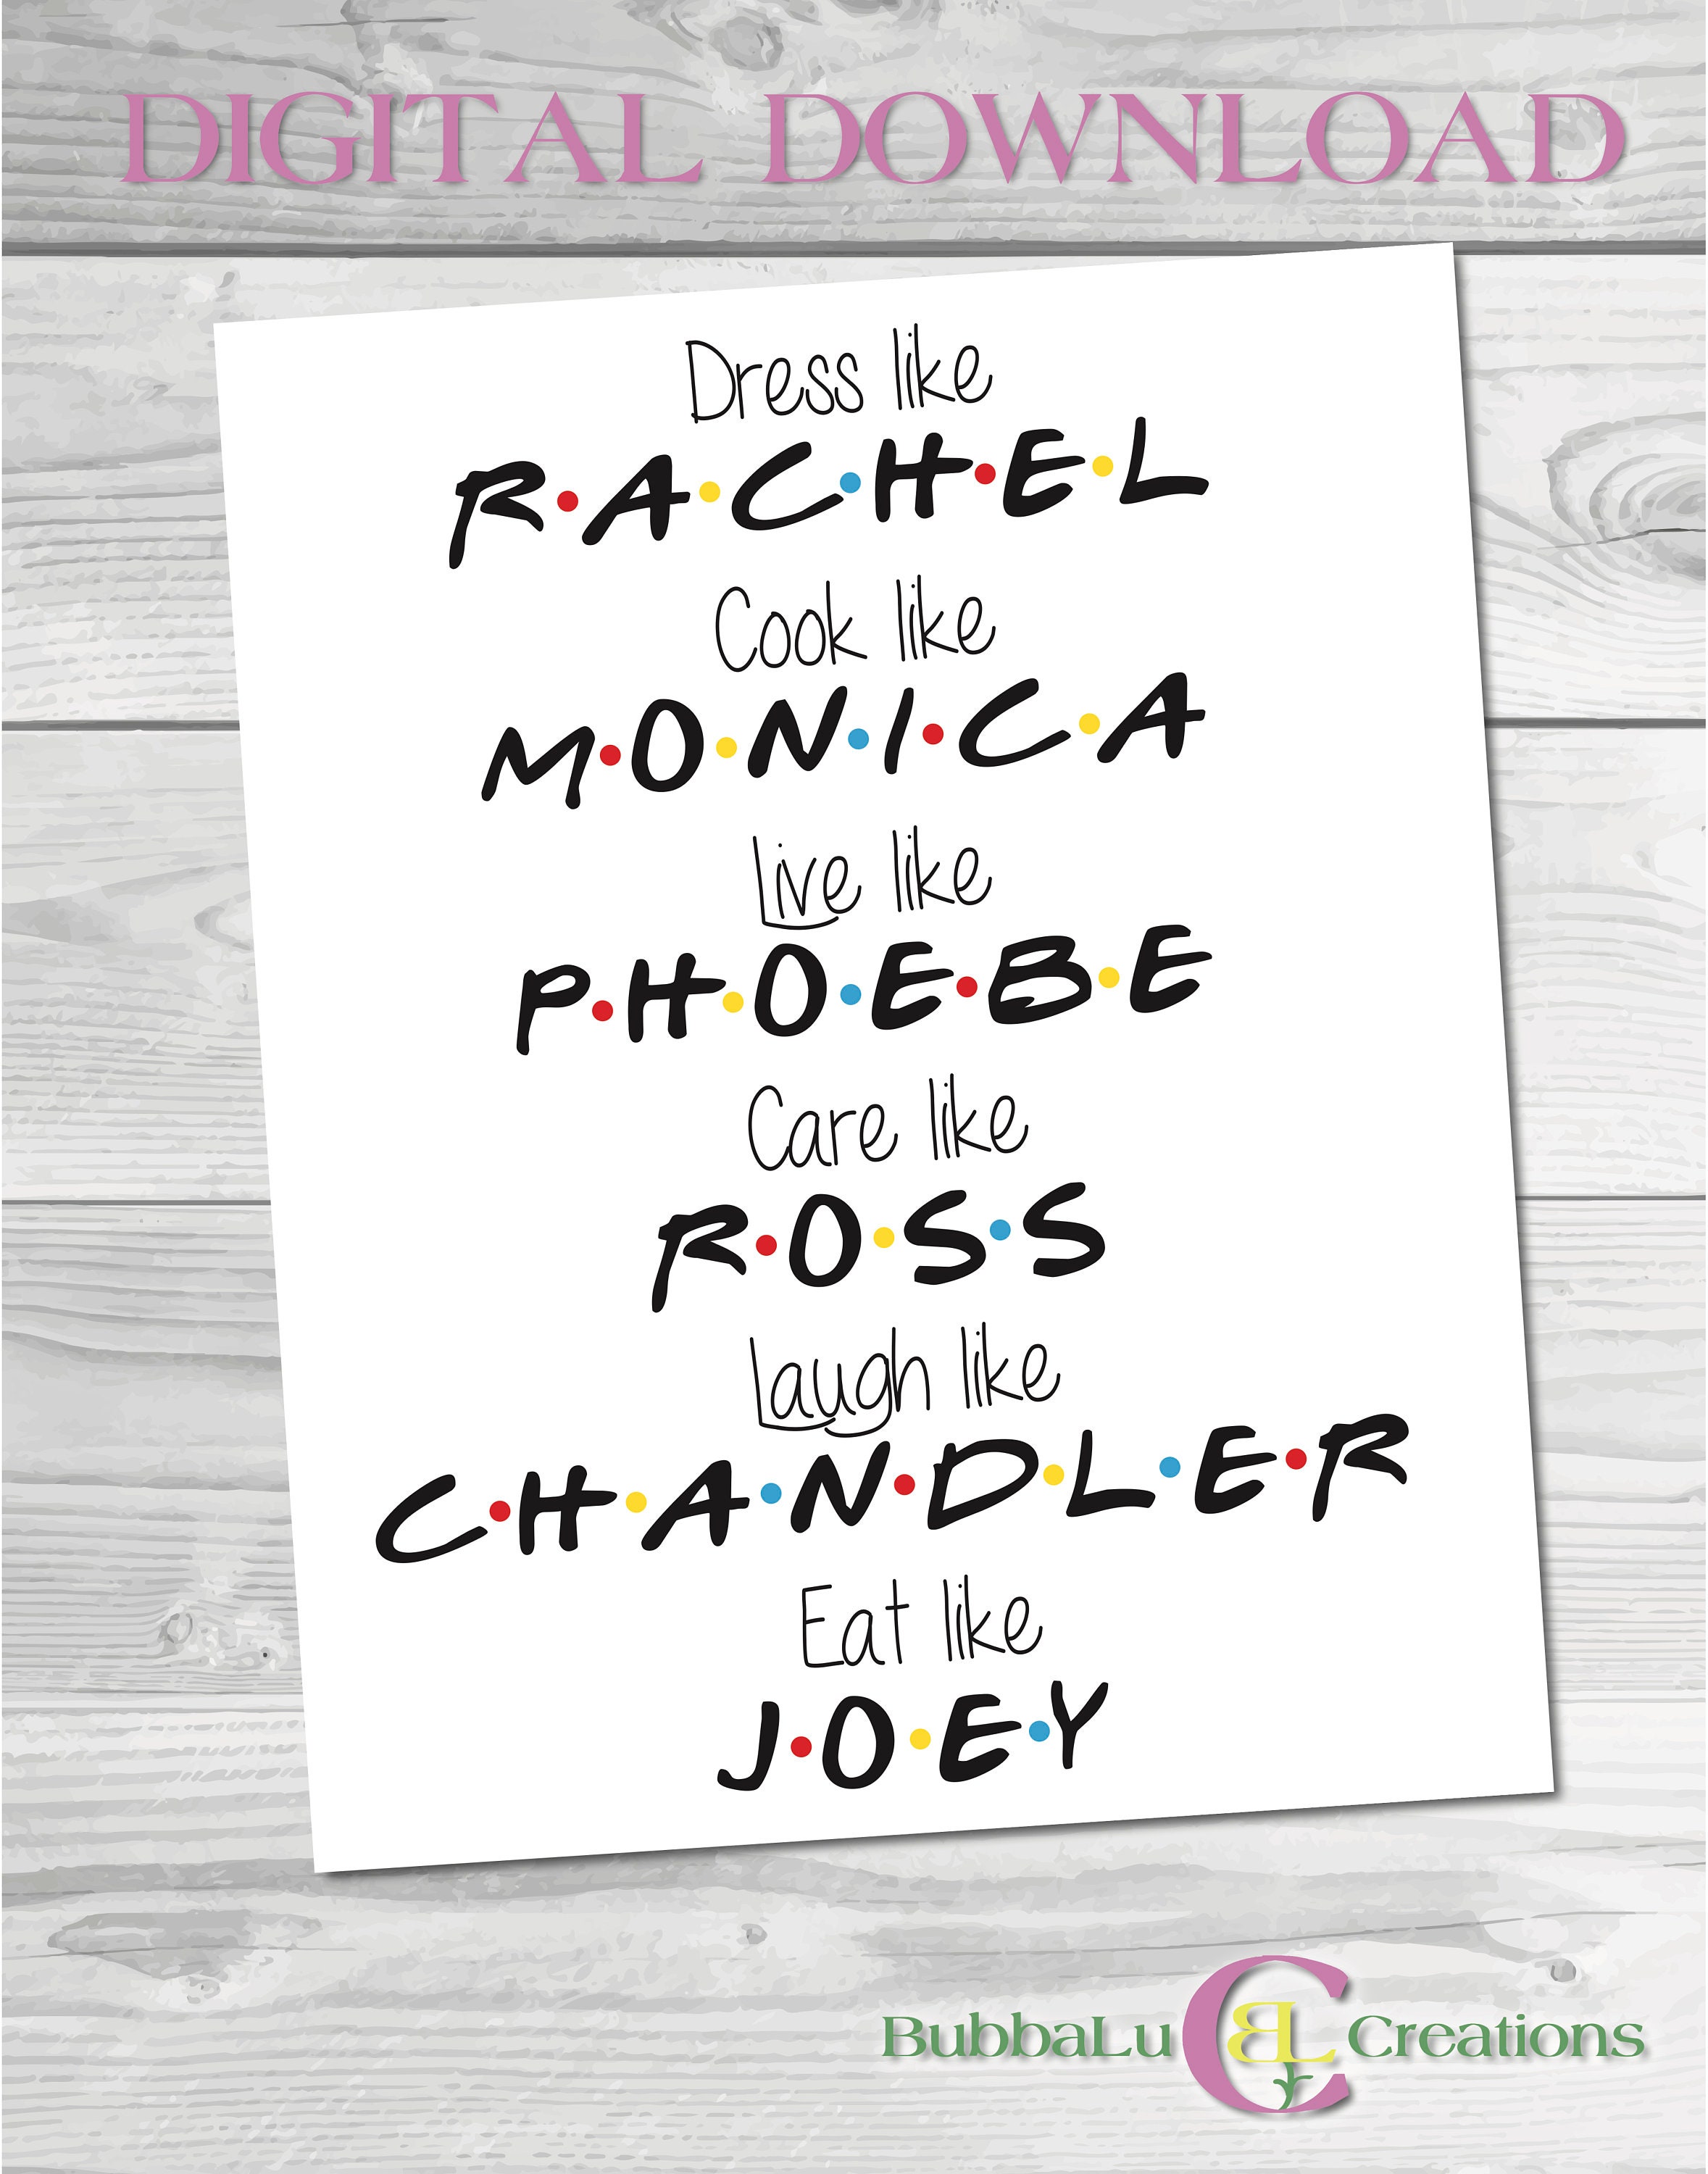 DIGITAL DOWNLOAD
Dress like
R•A•C•H•E•L
Cook like
M•O•N•I•C•A
Live like
P•H•O•E•B•E
Care like
R•O•S•S
Laugh like
C•H•A•N•D•L•E•R
Eat like
J•O•E•Y
BubbaLu CBL Creations